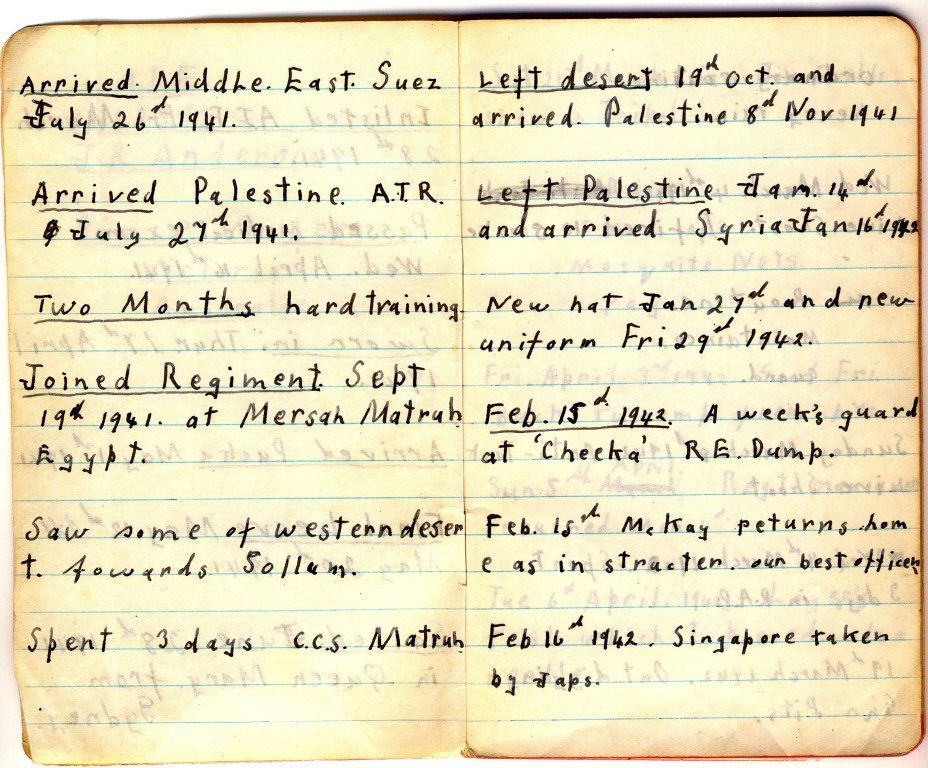 Arrived. Middle. East. Suez
July 26th 1941.
Arrived Palestine. A.T.R.
July 27th 1941.
Two Months hard training.
Joined Regiment. Sept
19th 1941. at Mersah Matruh
Egypt.
Saw some of western deser
t. towards Sollum.
Spent 3 days C.C.S. Matruh
Left desert 19th Oct. and
arrived. Palestine 8th Nov 1941
Left Palestine Jan. 14th.
and arrived Syria Jan 16th 1942
New hat Jan 27th and new
uniform Fri 29th 1942.
Feb. 15th 1942. A week's guard
at 'Cheeka' R.E. Dump.
Feb. 15th McKay returns hom
e as in stracter. our best officer
Feb 16th 1942. Singapore taken
by Japs.